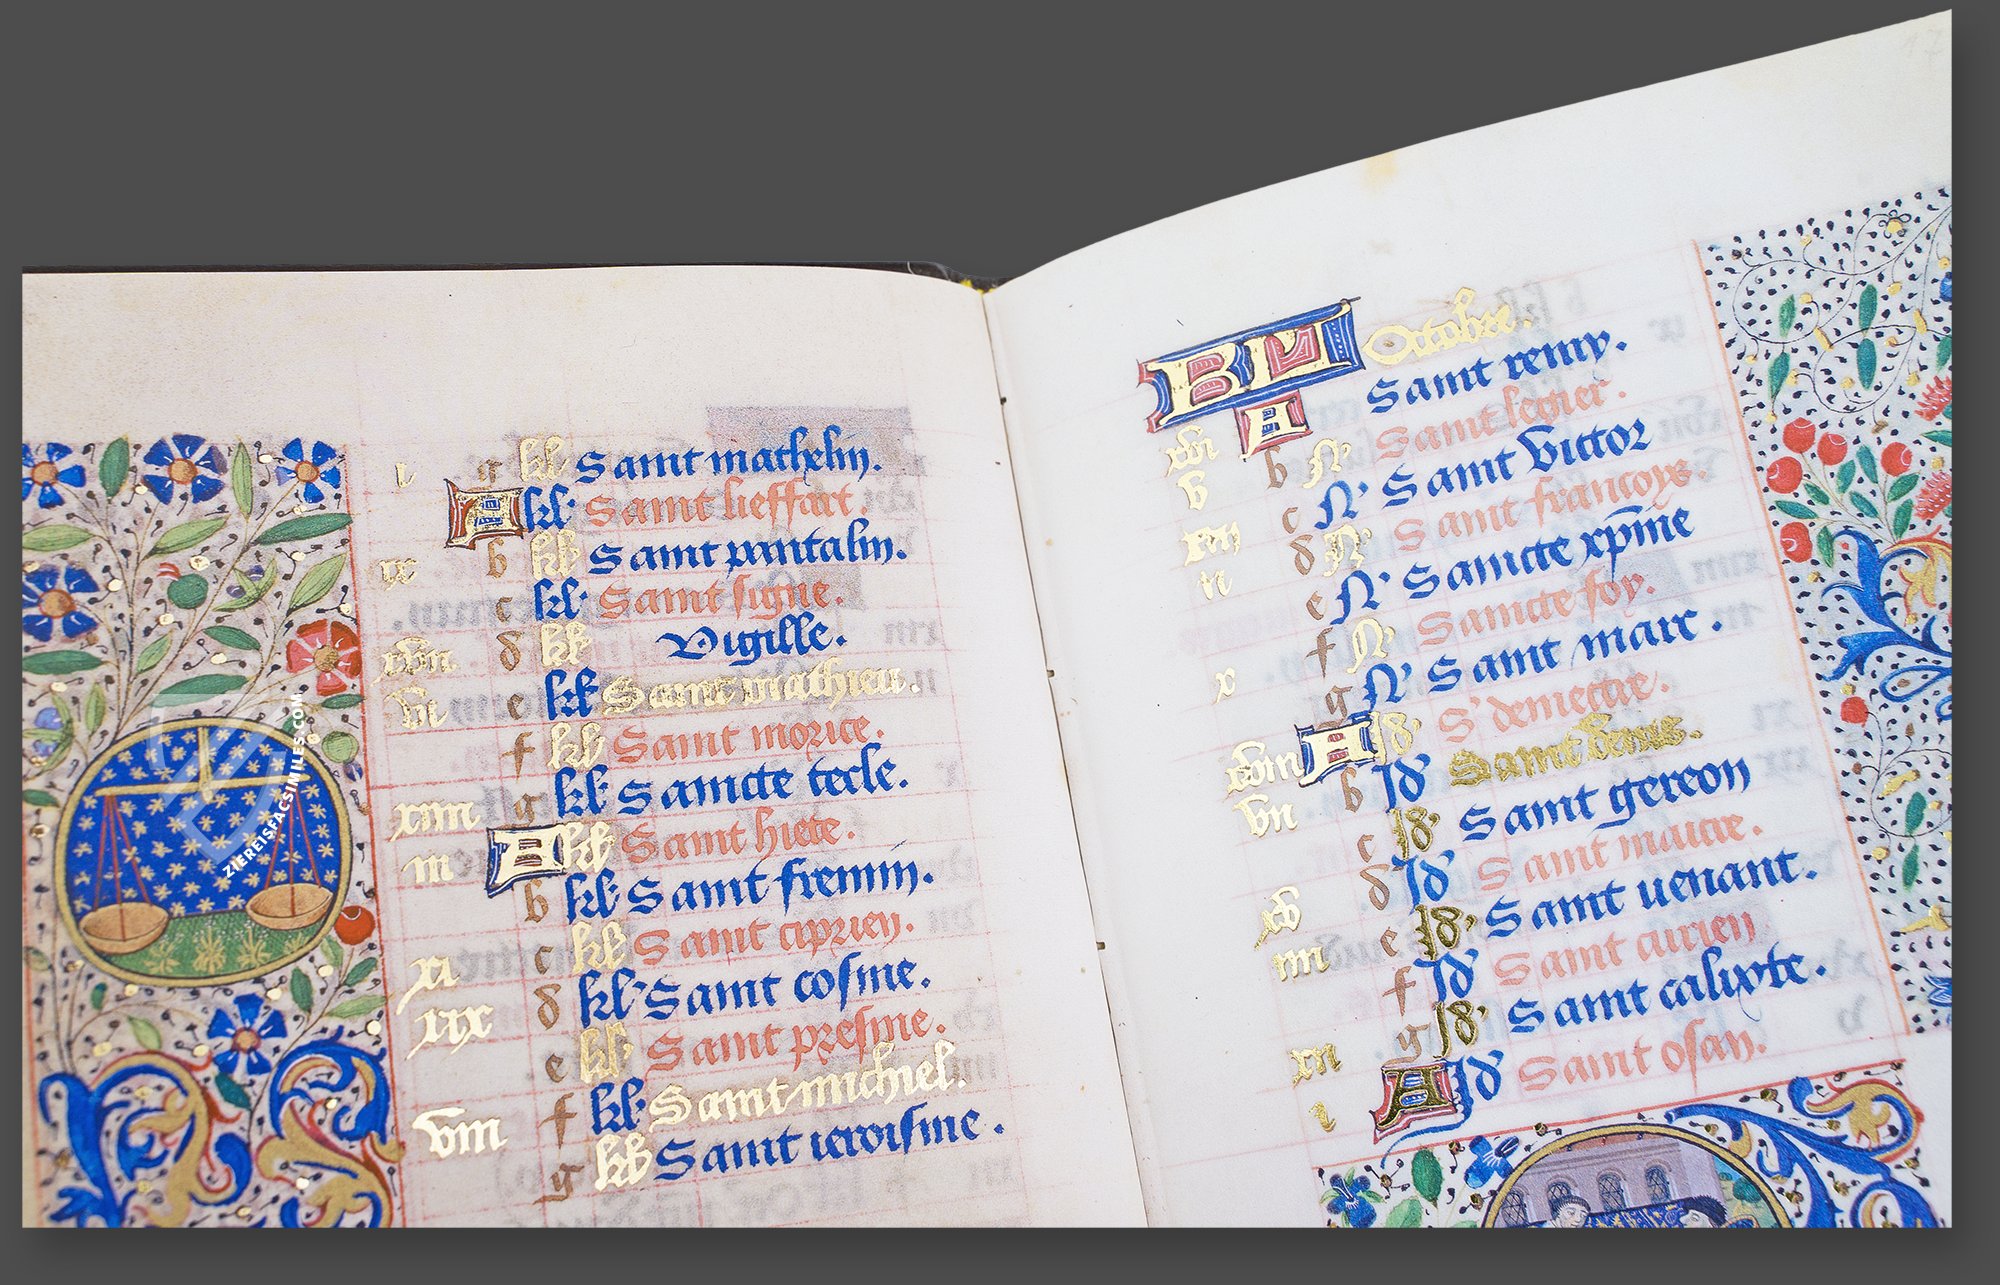 i g kl Saint mathelin.
A kl Saint lieffart.
ix b kl Saint pantalin.
c kl Saint signe.
xvii d kl Vigille.
vi e kl Saint mathieu.
f kl Saint morice.
xiiii g kl Saincte tecle.
iii A kl Saint
b kl Saint fremin.
xi c kl Saint ciprien.
xix d kl Saint cosme.
e kl Saint presme.
viii f kl Saint michiel.
g kl Saint ieroisme.
ZIEREISFACSIMILES.COM
KL Octobre.
xvi A Saint remy.
v b N Saint legier.
c N Saint victor
xiii d N Saint francoys.
ii e N Saincte xpine
f N Saincte foy.
x g N Saint marc.
A Id S' demectre.
xviii b Id Saint denis.
vii c Id Saint gereon
d Id Saint
xv e Id Saint uenant.
iiii f Id Saint
g Id Saint calixte.
xii A Id Saint osan.
i